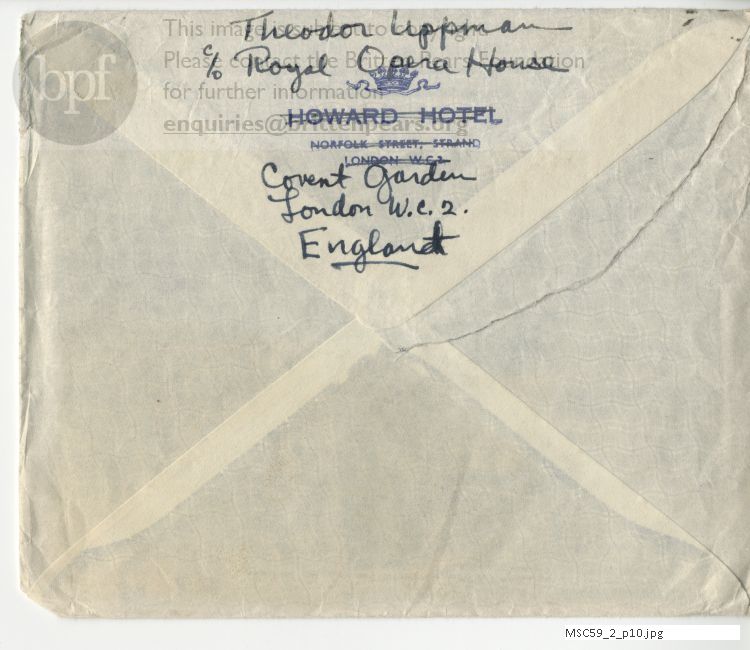 Theodor Uppman
c/o Royal Opera House
HOWARD HOTEL
NORFOLK STREET, STRAND
LONDON W.C.2.
Covent Garden
London W.C.2.
England
bpf
This image is subject to
Please contact the Britten-Pears Foundation
for further information
enquiries@brittenpears.org
MSC59_2_p10.jpg